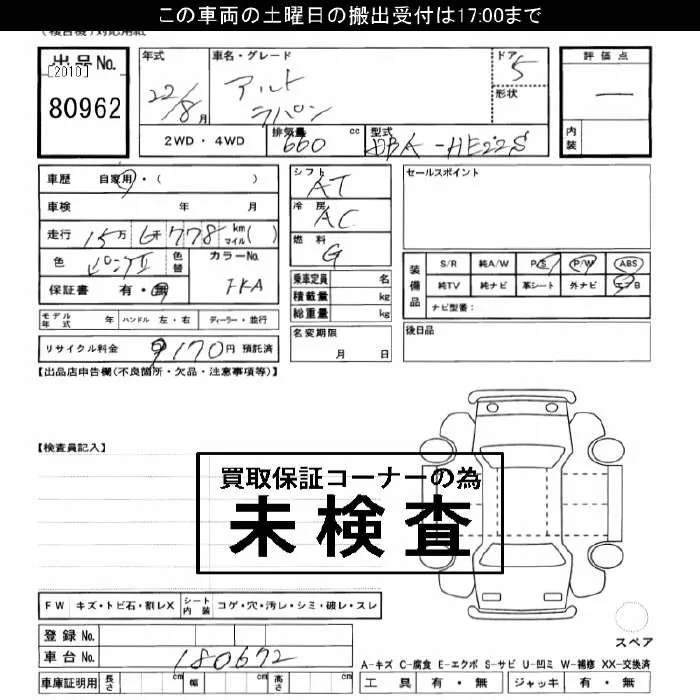 この車両の土曜日の搬出受付は17:00まで
(複合機)対応用紙
出品No.
[2010]
80962
年式 22/8月
車名・グレード アルト ラパン
ドア 5
形状
評価点 —
内装
2WD・4WD
排気量 660 cc
型式 DBA-HE22S
車歴 自家用・( )
車検 年 月
走行 15万6千778 km マイル( )
色 ピンクⅡ 色替
カラーNo. FKA
保証書 有・無
シフト AT
冷房 AC
燃料 G
乗車定員 名
積載量 kg
総重量 kg
セールスポイント
装備品
S/R 純A/W P/S P/W ABS
純TV 純ナビ 革シート 外ナビ エアB
ナビ型番:
モデル年式 年 ハンドル 左・右 ディーラー・並行
名変期限 月 日
後日品
リサイクル料金 9170円 預託済
【出品店申告欄(不良箇所・欠品・注意事項等)】
【検査員記入】
買取保証コーナーの為
未検査
FW キズ・トビ石・割レX シート内装 コゲ・穴・汚レ・シミ・破レ・スレ
スペア
登録No.
車台No. 180672
A-キズ C-腐食 E-エクボ S-サビ U-凹ミ W-補修 XX-交換済
車庫証明用 長さ cm 幅 cm 高さ cm
工具 有・無 ジャッキ 有・無